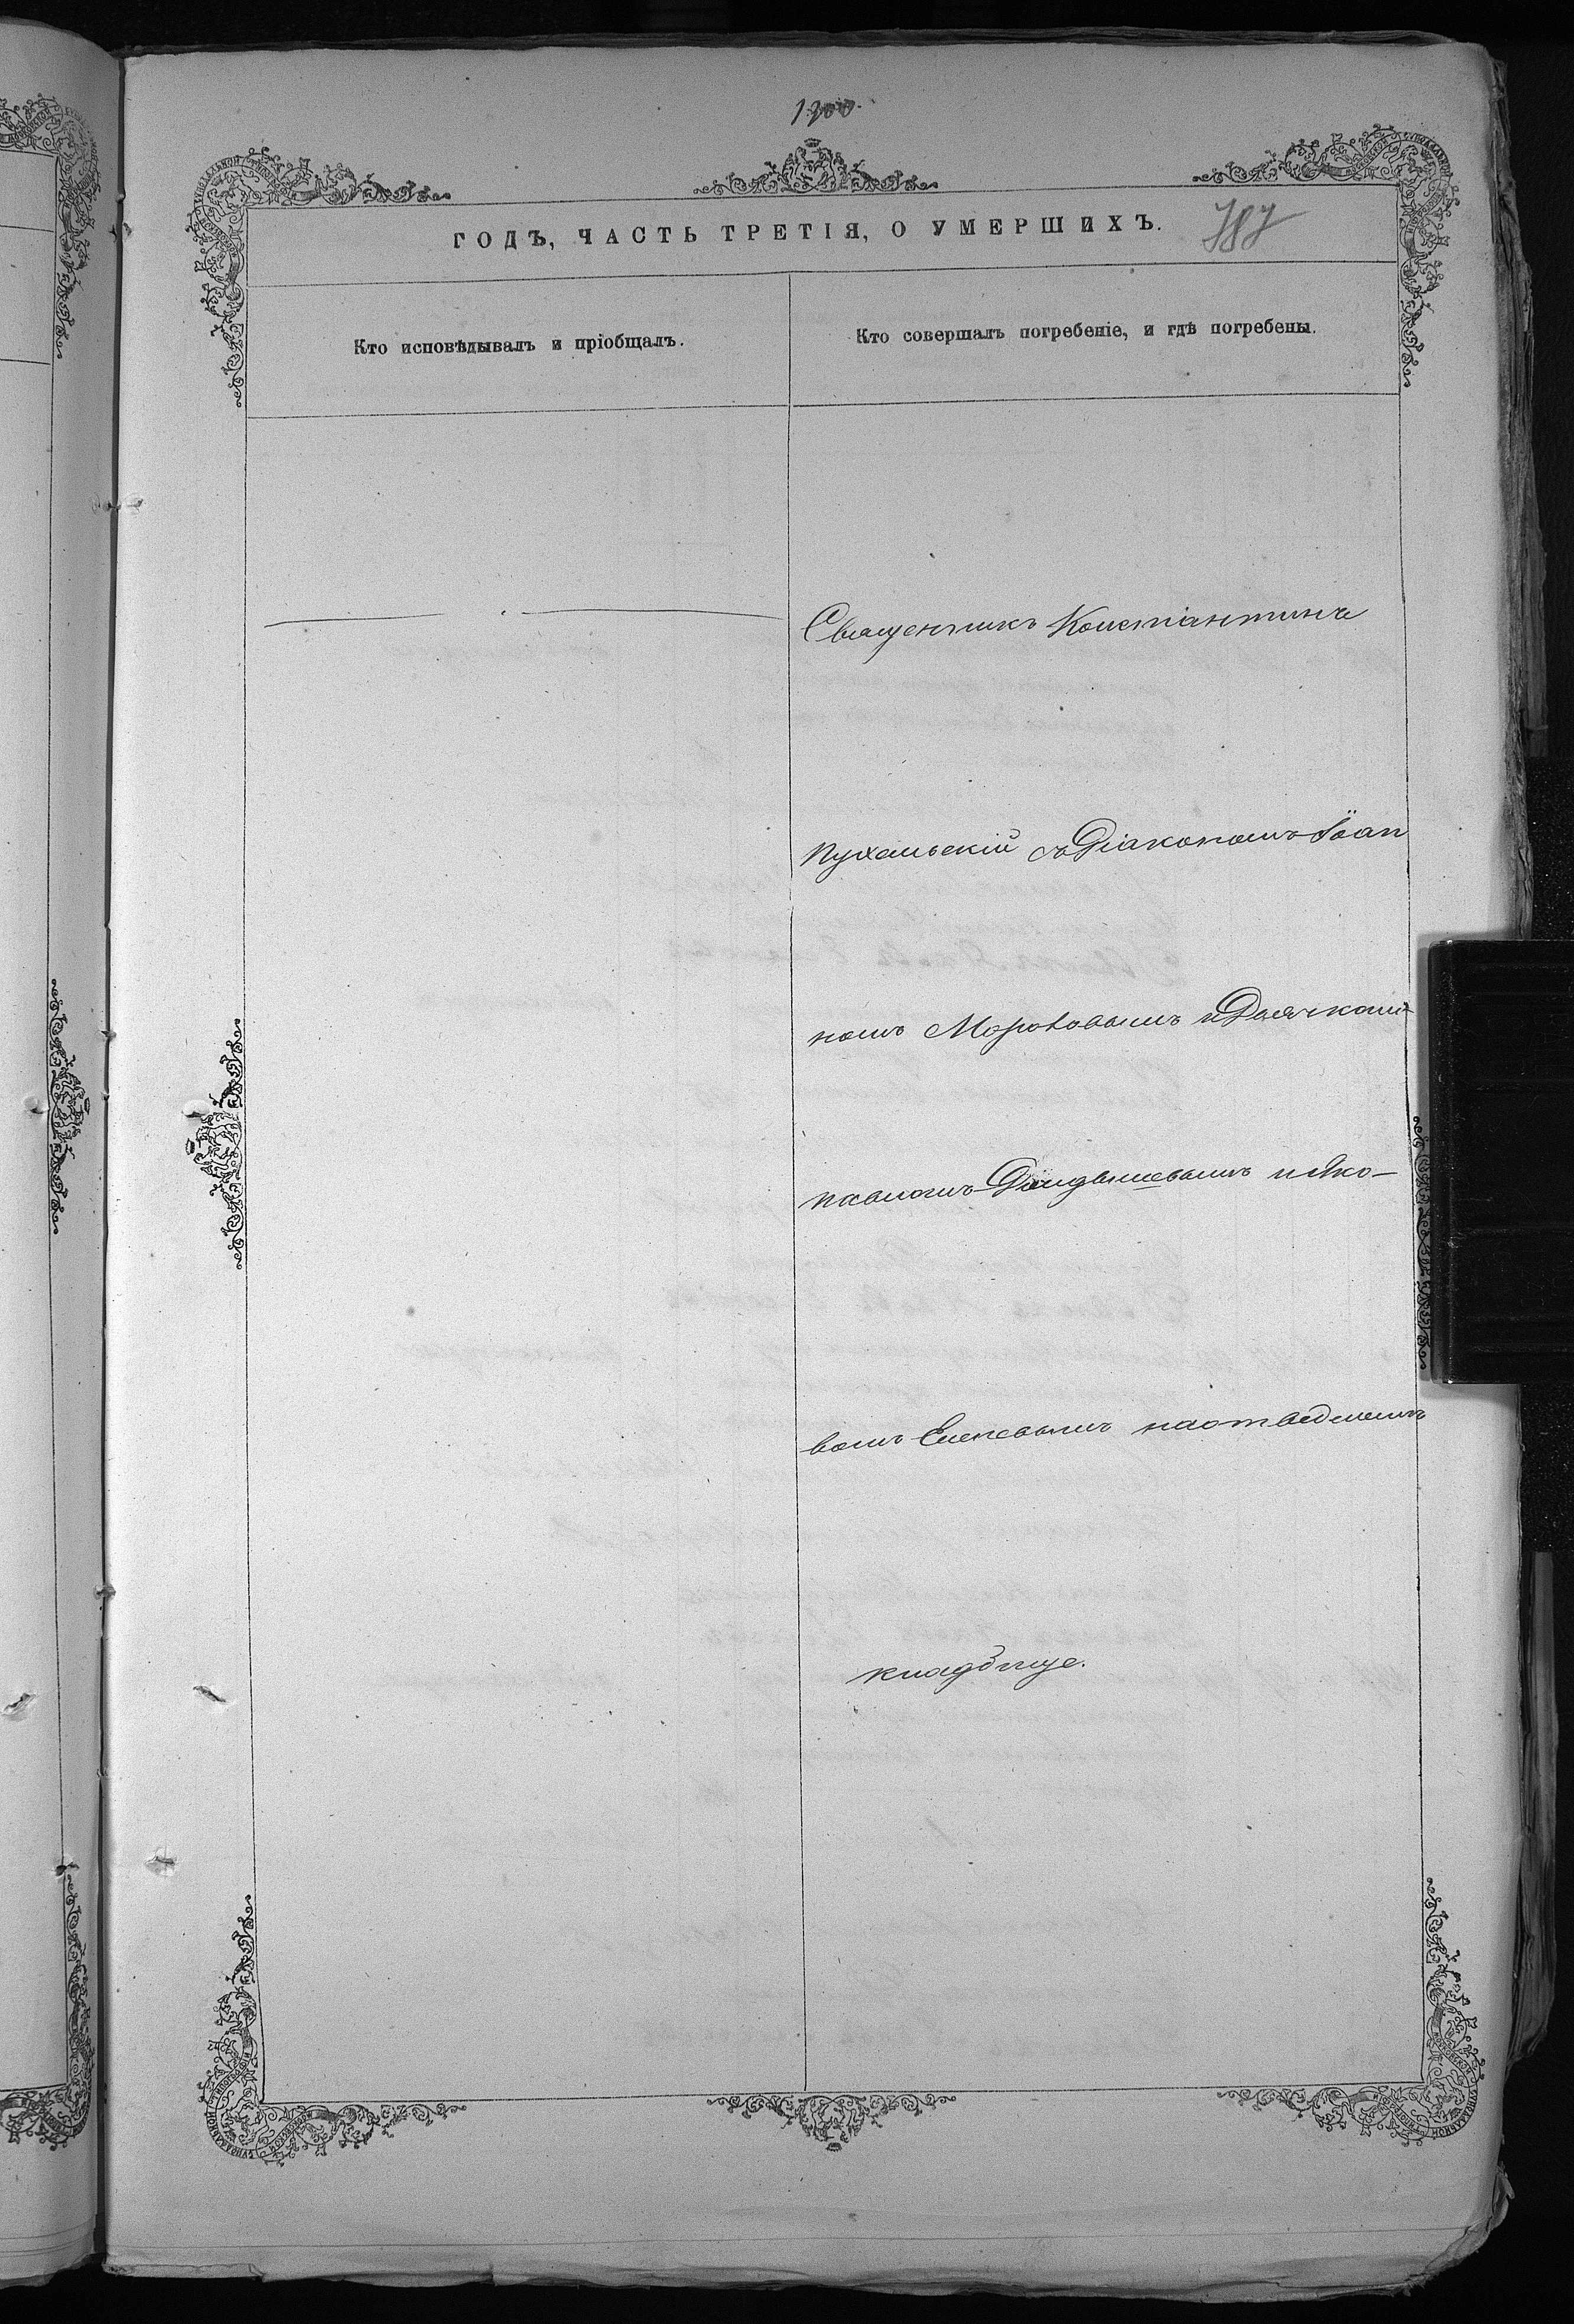 ГОДЪ, ЧАСТЬ ТРЕТІЯ, О УМЕРШИХЪ.
Кто исповѣдывалъ и пріобщалъ.
Кто совершалъ погребеніе, и гдѣ погребены.
Священникъ Констіантинъ
Пухальскій съ Діакономъ Іоан
номъ Морозовымъ и Дьячками
Павломъ и Яко-
вомъ на отведеномъ
кладбище.